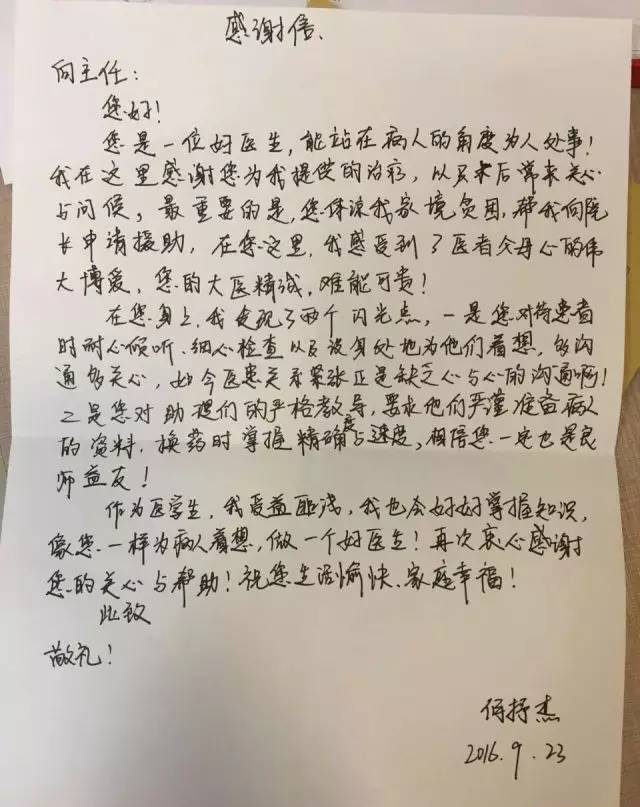 感谢信、
向主任：
您好！
您是一位好医生，能站在病人的角度为人处事！
我在这里感谢您为我提供的治疗，以及术后常来关心
与问候，最重要的是，您体谅我家境贫困，帮我向院
长申请援助，在您这里，我感受到了医者父母心的伟
大博爱，您的大医精诚，难能可贵！
在您身上，我发现了两个闪光点，一是您对待患者
时耐心倾听、细心检查以及设身处地为他们着想，够沟
通够关心，如今医患关系紧张正是缺乏心与心的沟通啊！
二是您对助理们的严格教导，要求他们严谨准备病人
的资料，换药时掌握精确度与速度，相信您一定也是良
师益友！
作为医学生，我受益匪浅，我也会好好掌握知识，
像您一样为病人着想，做一个好医生！再次衷心感谢
您的关心与帮助！祝您生活愉快、家庭幸福！
此致
敬礼！
何抒杰
2016.9.23